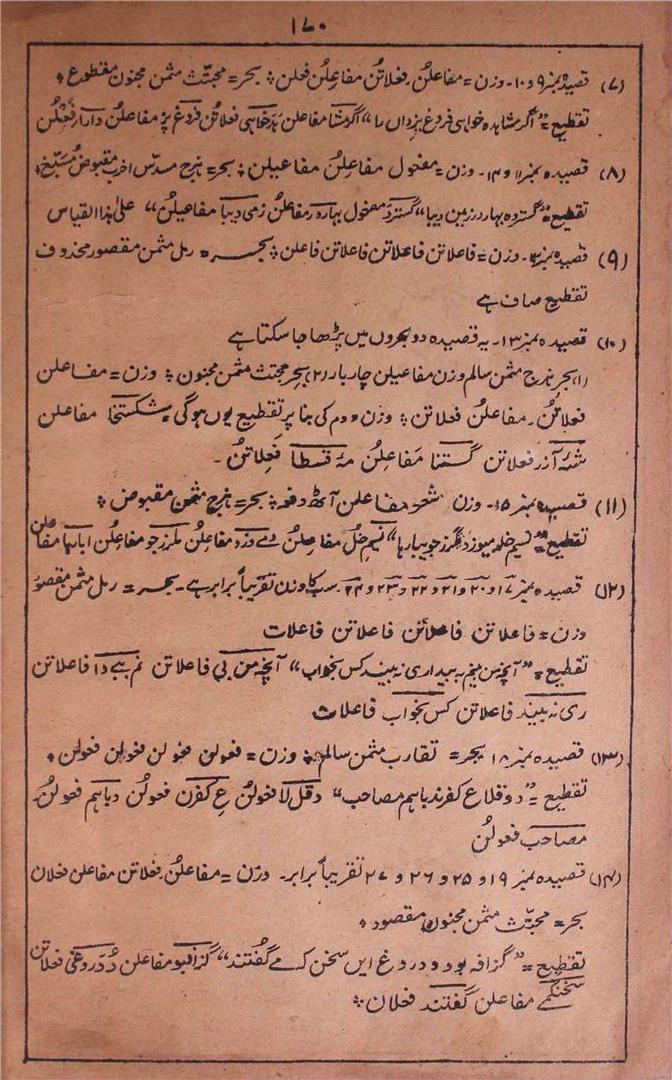 ۱۷۰
(۷) قصیدہ نمبر ۹ و ۱۰۔ وزن = مفاعلن۔ فعلاتن مفاعلن فعلن ؞ بحر = مجتث مثمن مجنون مقطوع ؞
تقطیع = "اگر مشاہدہ خواہی فروغ یزداں را" اگر مشا مفاعلن ہدخاہی فعلاتن فروغ یز مفاعلن دارا فعلن
(۸) قصیدہ نمبر ۱۱ و ۱۴۔ وزن = مفعول مفاعلن مفاعیلن ؞ بحر = ہزج مسدس اخرب مقبوض مسبّغ ؞
تقطیع = "گسترده بہار در زمین دیبا" گسترد مفعول بہار در مفاعلن زمی دیبا مفاعیلن" علیٰ ہذا القیاس
(۹) قصیدہ نمبر ۔ وزن = فاعلاتن فاعلاتن فاعلاتن فاعلن ؞ بحر = رمل مثمن مقصور محذوف
تقطیع صاف ہے
(۱۰) قصیدہ نمبر ۱۳۔ یہ قصیدہ دو بحروں میں پڑھا جا سکتا ہے
۱، بحر ہزج مثمن سالم وزن مفاعیلن چار بار ۲، بحر مجتث مثمن مجنون ؞ وزن = مفاعلن
فعلاتن۔ مفاعلن فعلاتن ؞ وزن دوم کی بنا پر تقطیع یوں ہوگی شکستخا مفاعلن
شہ آزر فعلاتن گستنا مفاعلن مہ قسطا فعلاتن ۔
(۱۱) قصیدہ نمبر ۱۵۔ وزن شعر مفاعلن آٹھ دفعہ ؞ بحر = ہزج مثمن مقبوض ؞
تقطیع = "نسیم خلد میوزد مگر ز جویبارہا" نسیم خل مفاعلن دمے وزد مفاعلن مگرز جو مفاعلن ابارہا مفاعلن
(۱۲) قصیدہ نمبر ۱۷ و ۲۰ و ۲۱ و ۲۲ و ۲۳ و ۲۴۔ سب کا وزن تقریباً برابر ہے۔ بحر = رمل مثمن مقصور
وزن = فاعلاتن فاعلاتن فاعلاتن فاعلات
تقطیع = "آنچہ من بینم بہ بیداری نہ بیند کس بخواب" آنچہ من بی فاعلاتن نم بہ بے دا فاعلاتن
ری نہ بیند فاعلاتن کس بخواب فاعلات
(۱۳) قصیدہ نمبر ۱۸ بحر = تقارب مثمن سالم ؞ وزن = فعولن فعولن فعولن فعولن ؞
تقطیع = "دو قلاع کفرند باہم مصاحب" دقل لا فعولن ع کفرن فعولن دباہم فعولن۔
مصاحب فعولن
(۱۴) قصیدہ نمبر ۱۹ و ۲۵ و ۲۶ و ۲۷ تقریباً برابر۔ وزن = مفاعلن۔ فعلاتن مفاعلن فعلان
بحر = مجتث مثمن مجنون مقصود ؞
تقطیع = "گزافہ بود و دروغ ایں سخن کہ مے گفتند" گزافبو مفاعلن ددروغی فعلاتن
سخنکمے مفاعلن گفتند فعلان ؞